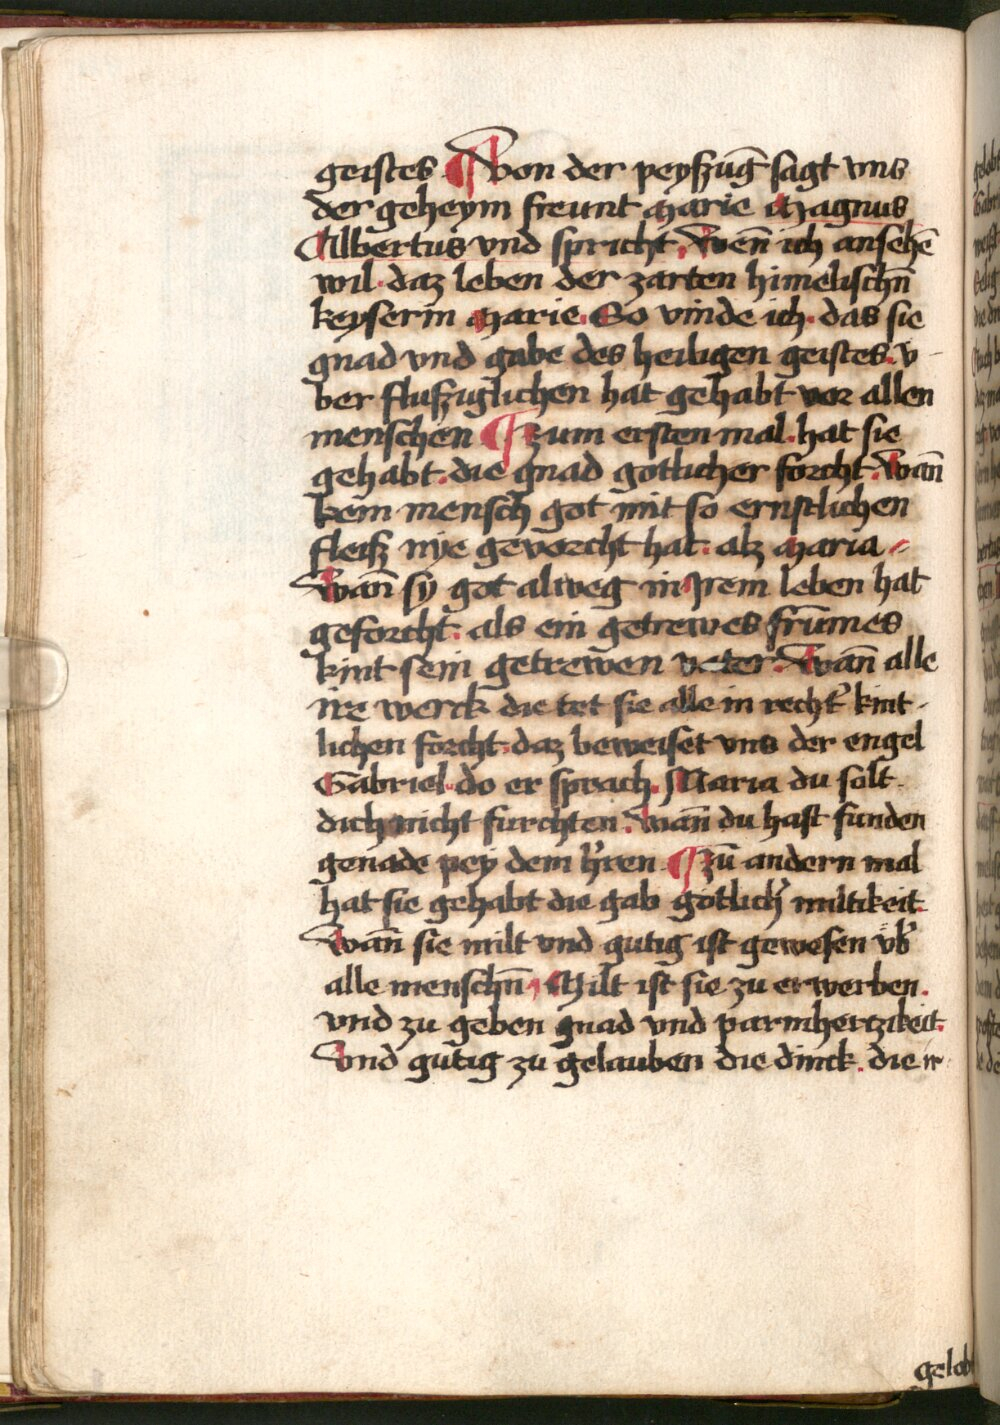 geistes ¶ Von der peyſzūg ſagt vns
der geheym freunt Marie Magnus
Albertus vnd ſpricht. Wen̄ ich anſehē
wil. daz leben der zarten himeliſchn̄
keyſerin Marie. So vinde ich. das ſie
gnad vnd gabe des heiligen geiſtes. v-
ber fluſziglichen hat gehabt vor allen
menſchen ¶ Zum erſten mal. hat ſie
gehabt. die gnad gotlicher forcht. Wan̄
kein menſch got mit ſo ernſtlichen
fleiſz nÿe gevorcht hat. alz Maria
Wan̄ ſÿ got alweg in Jrem leben hat
geforcht. als ein getrewes frūmes
kint ſein getrewen veter. Wan̄ alle
ire werck die tet ſie alle in recht' kint-
lichen forcht. daz beweiſet vns der engel
Gabriel. do er ſprach. Maria du ſolt
dich nicht furchten. wan̄ du haſt funden
genade pey dem h'ren ¶ Zū andern mal
hat ſie gehabt die gab gotlich' miltikeit.
Wan̄ ſie milt vnd gutig iſt geweſen vb'
alle menſchn̄. Milt iſt ſie zu erwerben.
vnd zu geben gnad vnd parmhertzikeit.
Vnd gutig zu gelauben die dinck. die ir